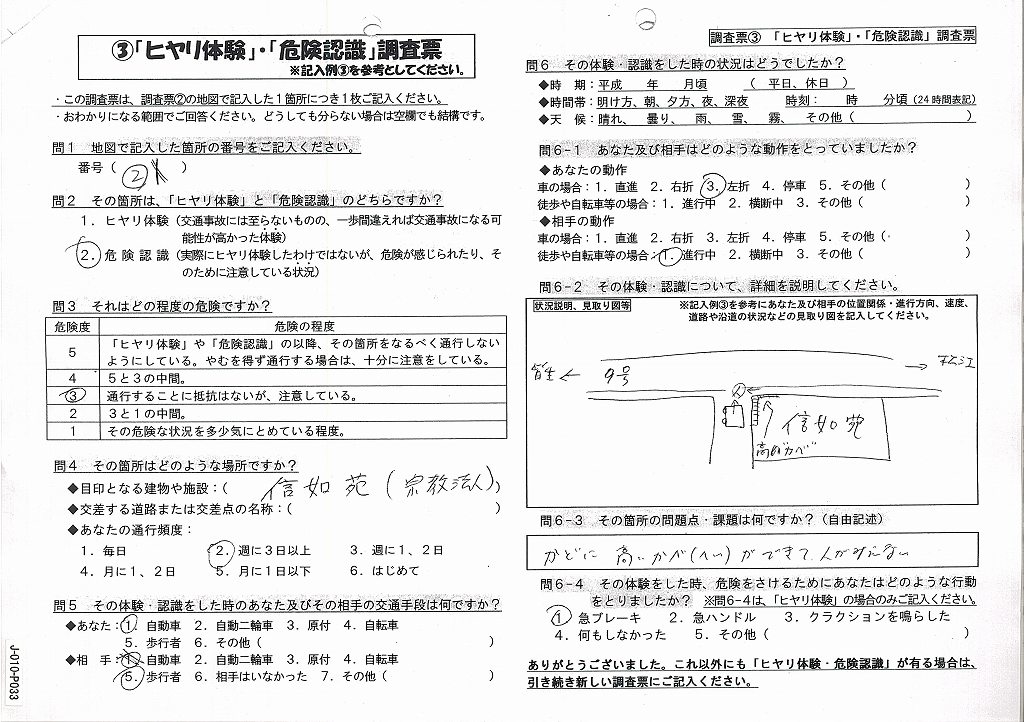 ③「ヒヤリ体験」・「危険認識」調査票
※記入例③を参考としてください。
・この調査票は、調査票②の地図で記入した1箇所につき1枚ご記入ください。
・おわかりになる範囲でご回答ください。どうしても分らない場合は空欄でも結構です。
問1 地図で記入した箇所の番号をご記入ください。
番号( ② )
問2 その箇所は、「ヒヤリ体験」と「危険認識」のどちらですか?
1. ヒヤリ体験(交通事故には至らないものの、一歩間違えれば交通事故になる可
能性が高かった体験)
2. 危険認識(実際にヒヤリ体験したわけではないが、危険が感じられたり、そ
のために注意している状況)
問3 それはどの程度の危険ですか?
危険度 危険の程度
5 「ヒヤリ体験」や「危険認識」の以降、その箇所をなるべく通行しない
ようにしている。やむを得ず通行する場合は、十分に注意をしている。
4 5と3の中間。
③ 通行することに抵抗はないが、注意している。
2 3と1の中間。
1 その危険な状況を多少気にとめている程度。
問4 その箇所はどのような場所ですか?
◆目印となる建物や施設:( 信如苑(宗教法人))
◆交差する道路または交差点の名称:( )
◆あなたの通行頻度:
1. 毎日 2. 週に3日以上 3. 週に1、2日
4. 月に1、2日 5. 月に1日以下 6. はじめて
問5 その体験・認識をした時のあなた及びその相手の交通手段は何ですか?
◆あなた:1. 自動車 2. 自動二輪車 3. 原付 4. 自転車
5. 歩行者 6. その他( )
◆相 手:1. 自動車 2. 自動二輪車 3. 原付 4. 自転車
5. 歩行者 6. 相手はいなかった 7. その他( )
J-010-P033
調査票③ 「ヒヤリ体験」・「危険認識」調査票
問6 その体験・認識をした時の状況はどうでしたか?
◆時 期:平成 年 月頃 ( 平日、休日 )
◆時間帯:明け方、朝、夕方、夜、深夜 時刻: 時 分頃(24時間表記)
◆天 候:晴れ、 曇り、 雨、 雪、 霧、 その他( )
問6-1 あなた及び相手はどのような動作をとっていましたか?
◆あなたの動作
車の場合:1. 直進 2. 右折 3. 左折 4. 停車 5. その他( )
徒歩や自転車等の場合:1. 進行中 2. 横断中 3. その他( )
◆相手の動作
車の場合:1. 直進 2. 右折 3. 左折 4. 停車 5. その他( )
徒歩や自転車等の場合:1. 進行中 2. 横断中 3. その他( )
問6-2 その体験・認識について、詳細を説明してください。
状況説明、見取り図等 ※記入例③を参考にあなた及び相手の位置関係・進行方向、速度、
道路や沿道の状況などの見取り図を記入してください。
9号
松江
人
信如苑
高いカベ
問6-3 その箇所の問題点・課題は何ですか?(自由記述)
かどに 高いかべ(へい)ができて人がみえない
問6-4 その体験をした時、危険をさけるためにあなたはどのような行動
をとりましたか? ※問6-4は、「ヒヤリ体験」の場合のみご記入ください。
1 急ブレーキ 2. 急ハンドル 3. クラクションを鳴らした
4. 何もしなかった 5. その他( )
ありがとうございました。これ以外にも「ヒヤリ体験・危険認識」が有る場合は、
引き続き新しい調査票にご記入ください。